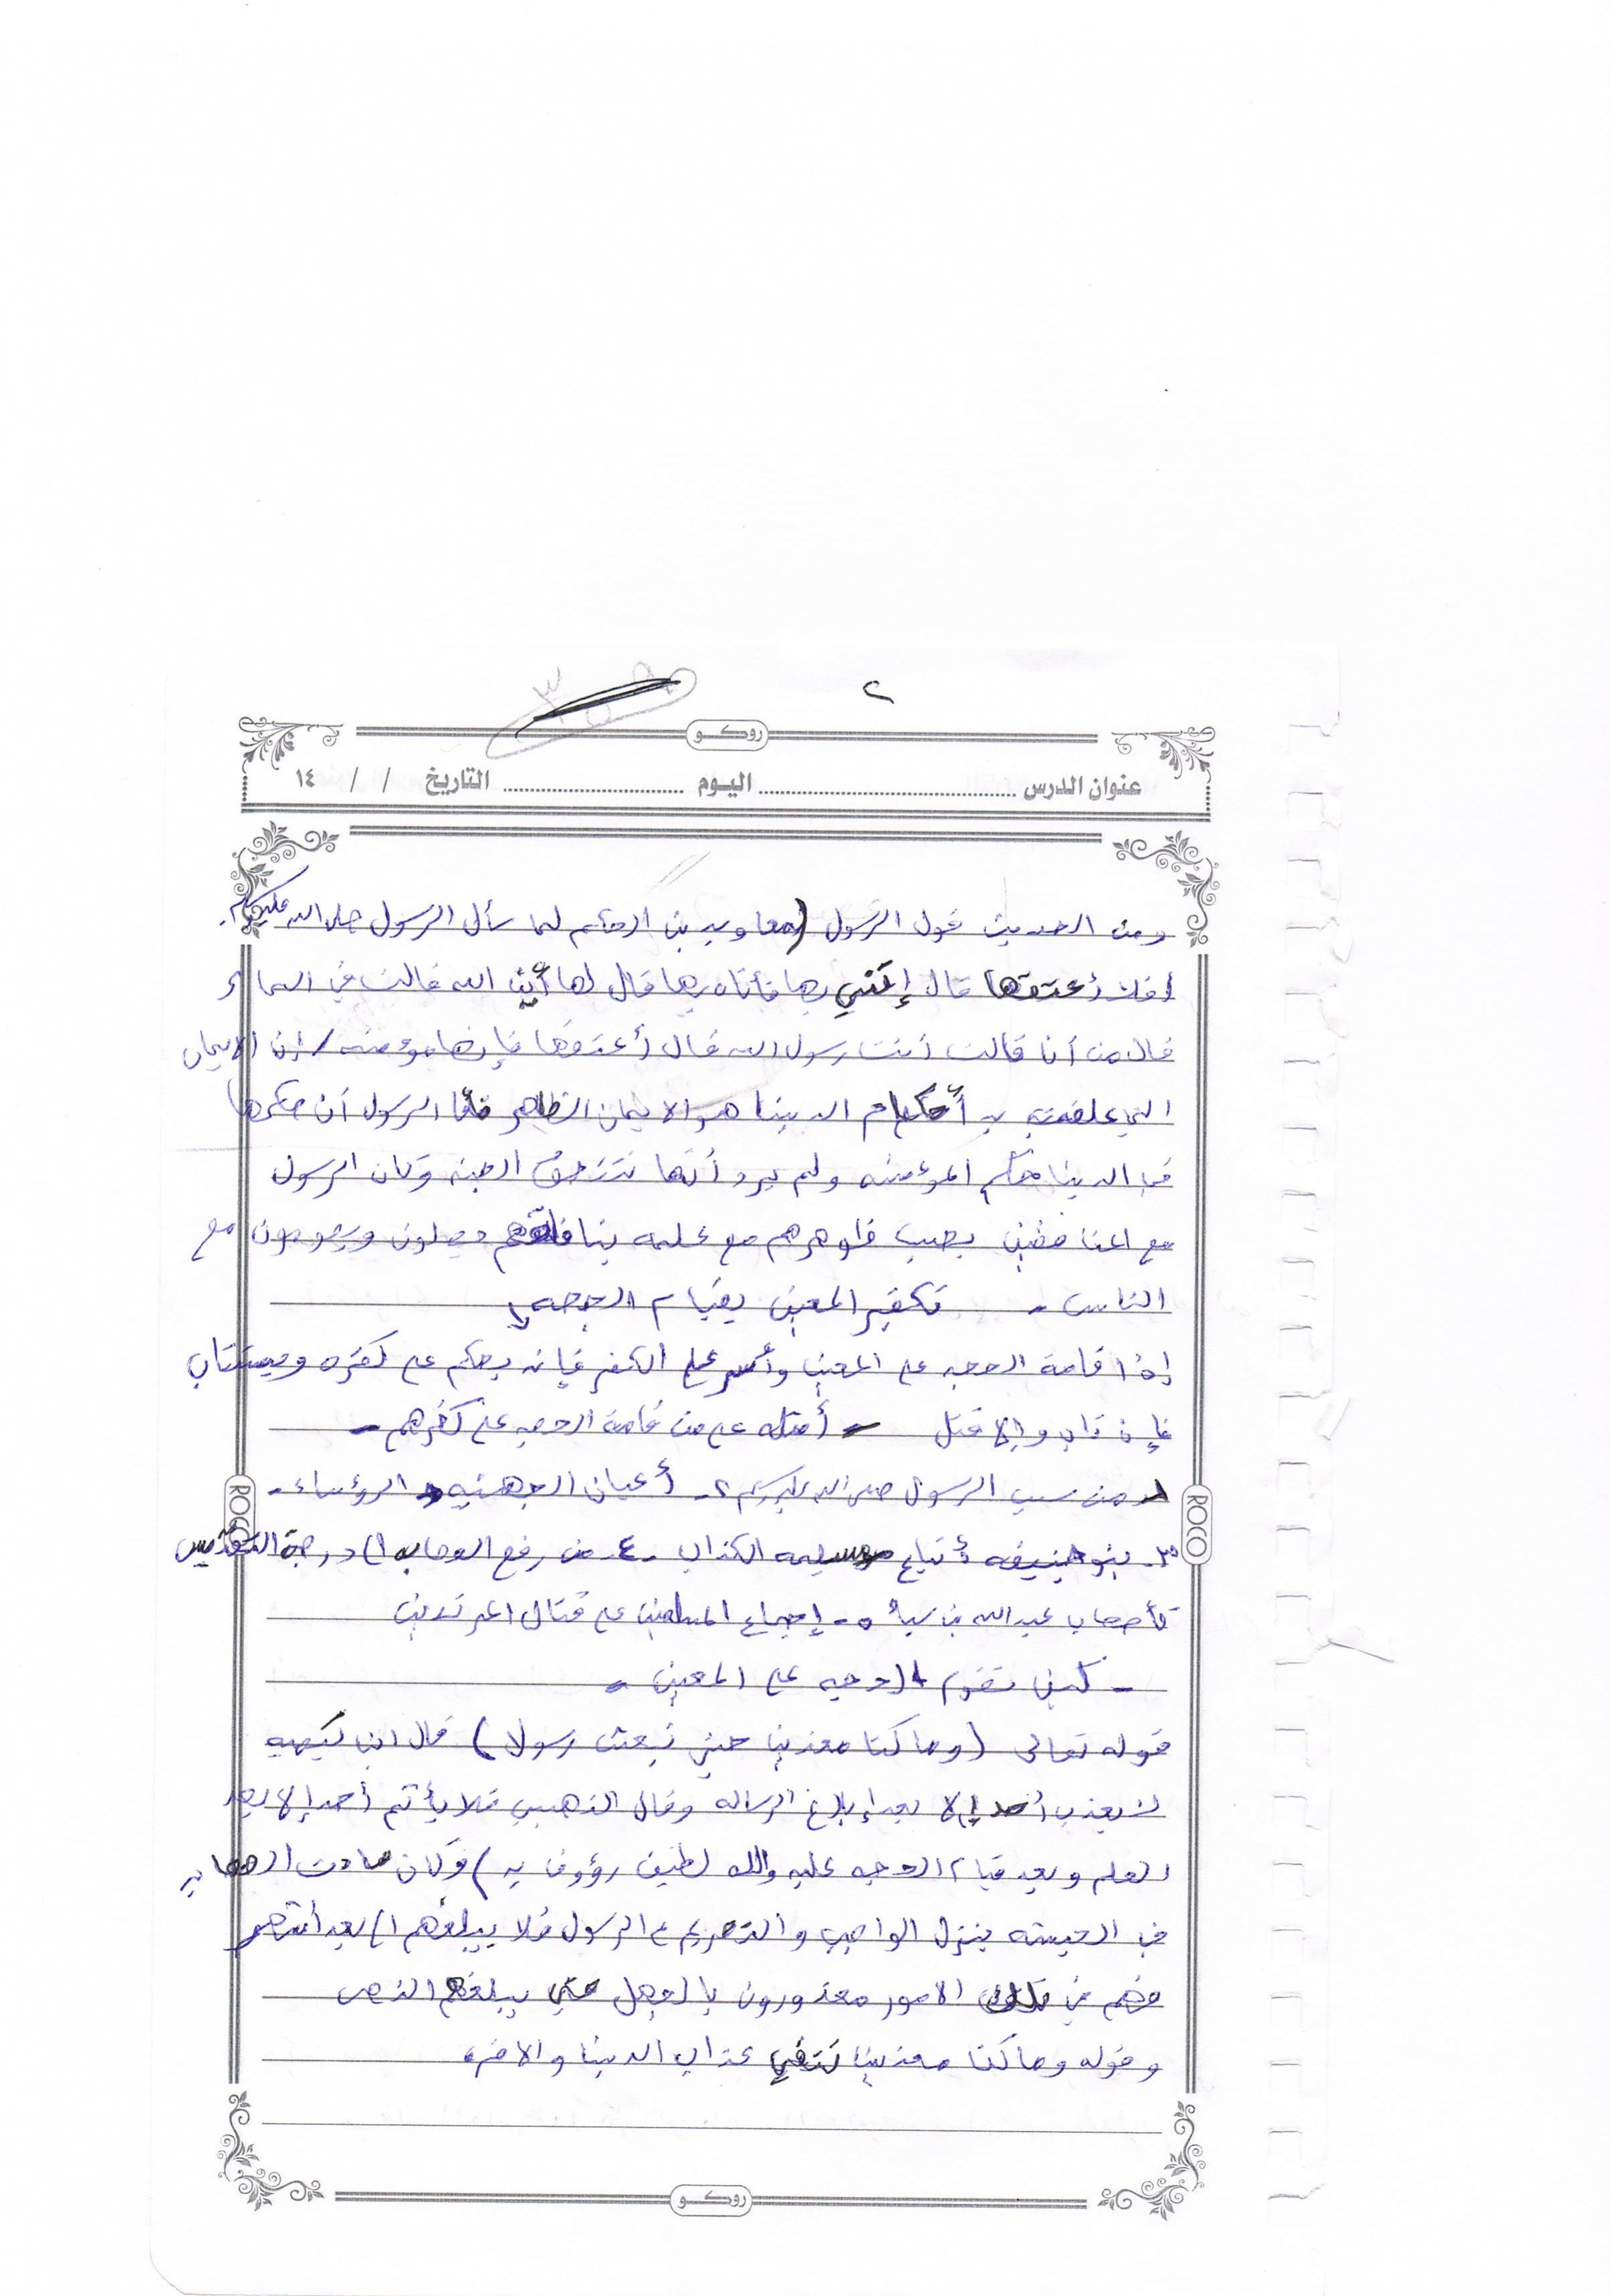 ٢
روكو
عنوان الدرس اليوم التاريخ / / ١٤
ومن الحديث قول الرسول (لمعاويه بن الحكم لما سأل الرسول صلى الله عليه وسلم
أفلا أعتقها قال إئتني بها فأتاه بها قال لها أين الله قالت في السماء
قال من أنا قالت أنت رسول الله قال أعتقها فإنها مؤمنه / إن الايمان
الي علقت به أحكام الدينا هو الايمان الظاهر فأما الرسول أن حكمها
في الدينا حكم المؤمنه ولم يرد أنها تستحق الجنه وكان الرسول
مع المنافقين بحسب ظوهرهم مع علمه بنفاقهم ويصلون ويصومون مع
الناس - تكفير المعين بقيام الحجه
إذا قامة الحجه على المعين وأصر على الكفر فإنه يحكم على كفره ويستتاب
فإن تاب وإلا قتل - أمثله على من قامة الحجه على كفرهم -
١- من سب الرسول صلى الله عليه وسلم ٢- أعيان الجهميه و الرؤساء -
٣- بنو حنيفه أتباع مسيلمه الكذاب - ٤- من رفع الصحابه الى درجة التقديس
كأصحاب عبدالله بن سبأ ٥- إجماع المسلمين على قتال المرتدين
- كيف تقوم الحجه على المعين -
قوله تعالى (وما كنا معذبين حتى نبعث رسولا) قال ابن تيميه
لا يعذب أحد إلا بعد إبلاغ الرساله وقال الذهبي فلا يأثم أحد إلا بعد
العلم وبعد قيام الحجه عليه والله لطيف رؤوف به) وكان سادت الصحابه
في الحبشه ينزل الواجب والتحريم على الرسول فلا يبلغهم إلا بعد أشهر
فهم في تلك الامور معذورون بالجهل حتى يبلغهم النص
وقوله وما كنا معذبين تنفي عذاب الدينا والاخره
ROCO
ROCO
روكو